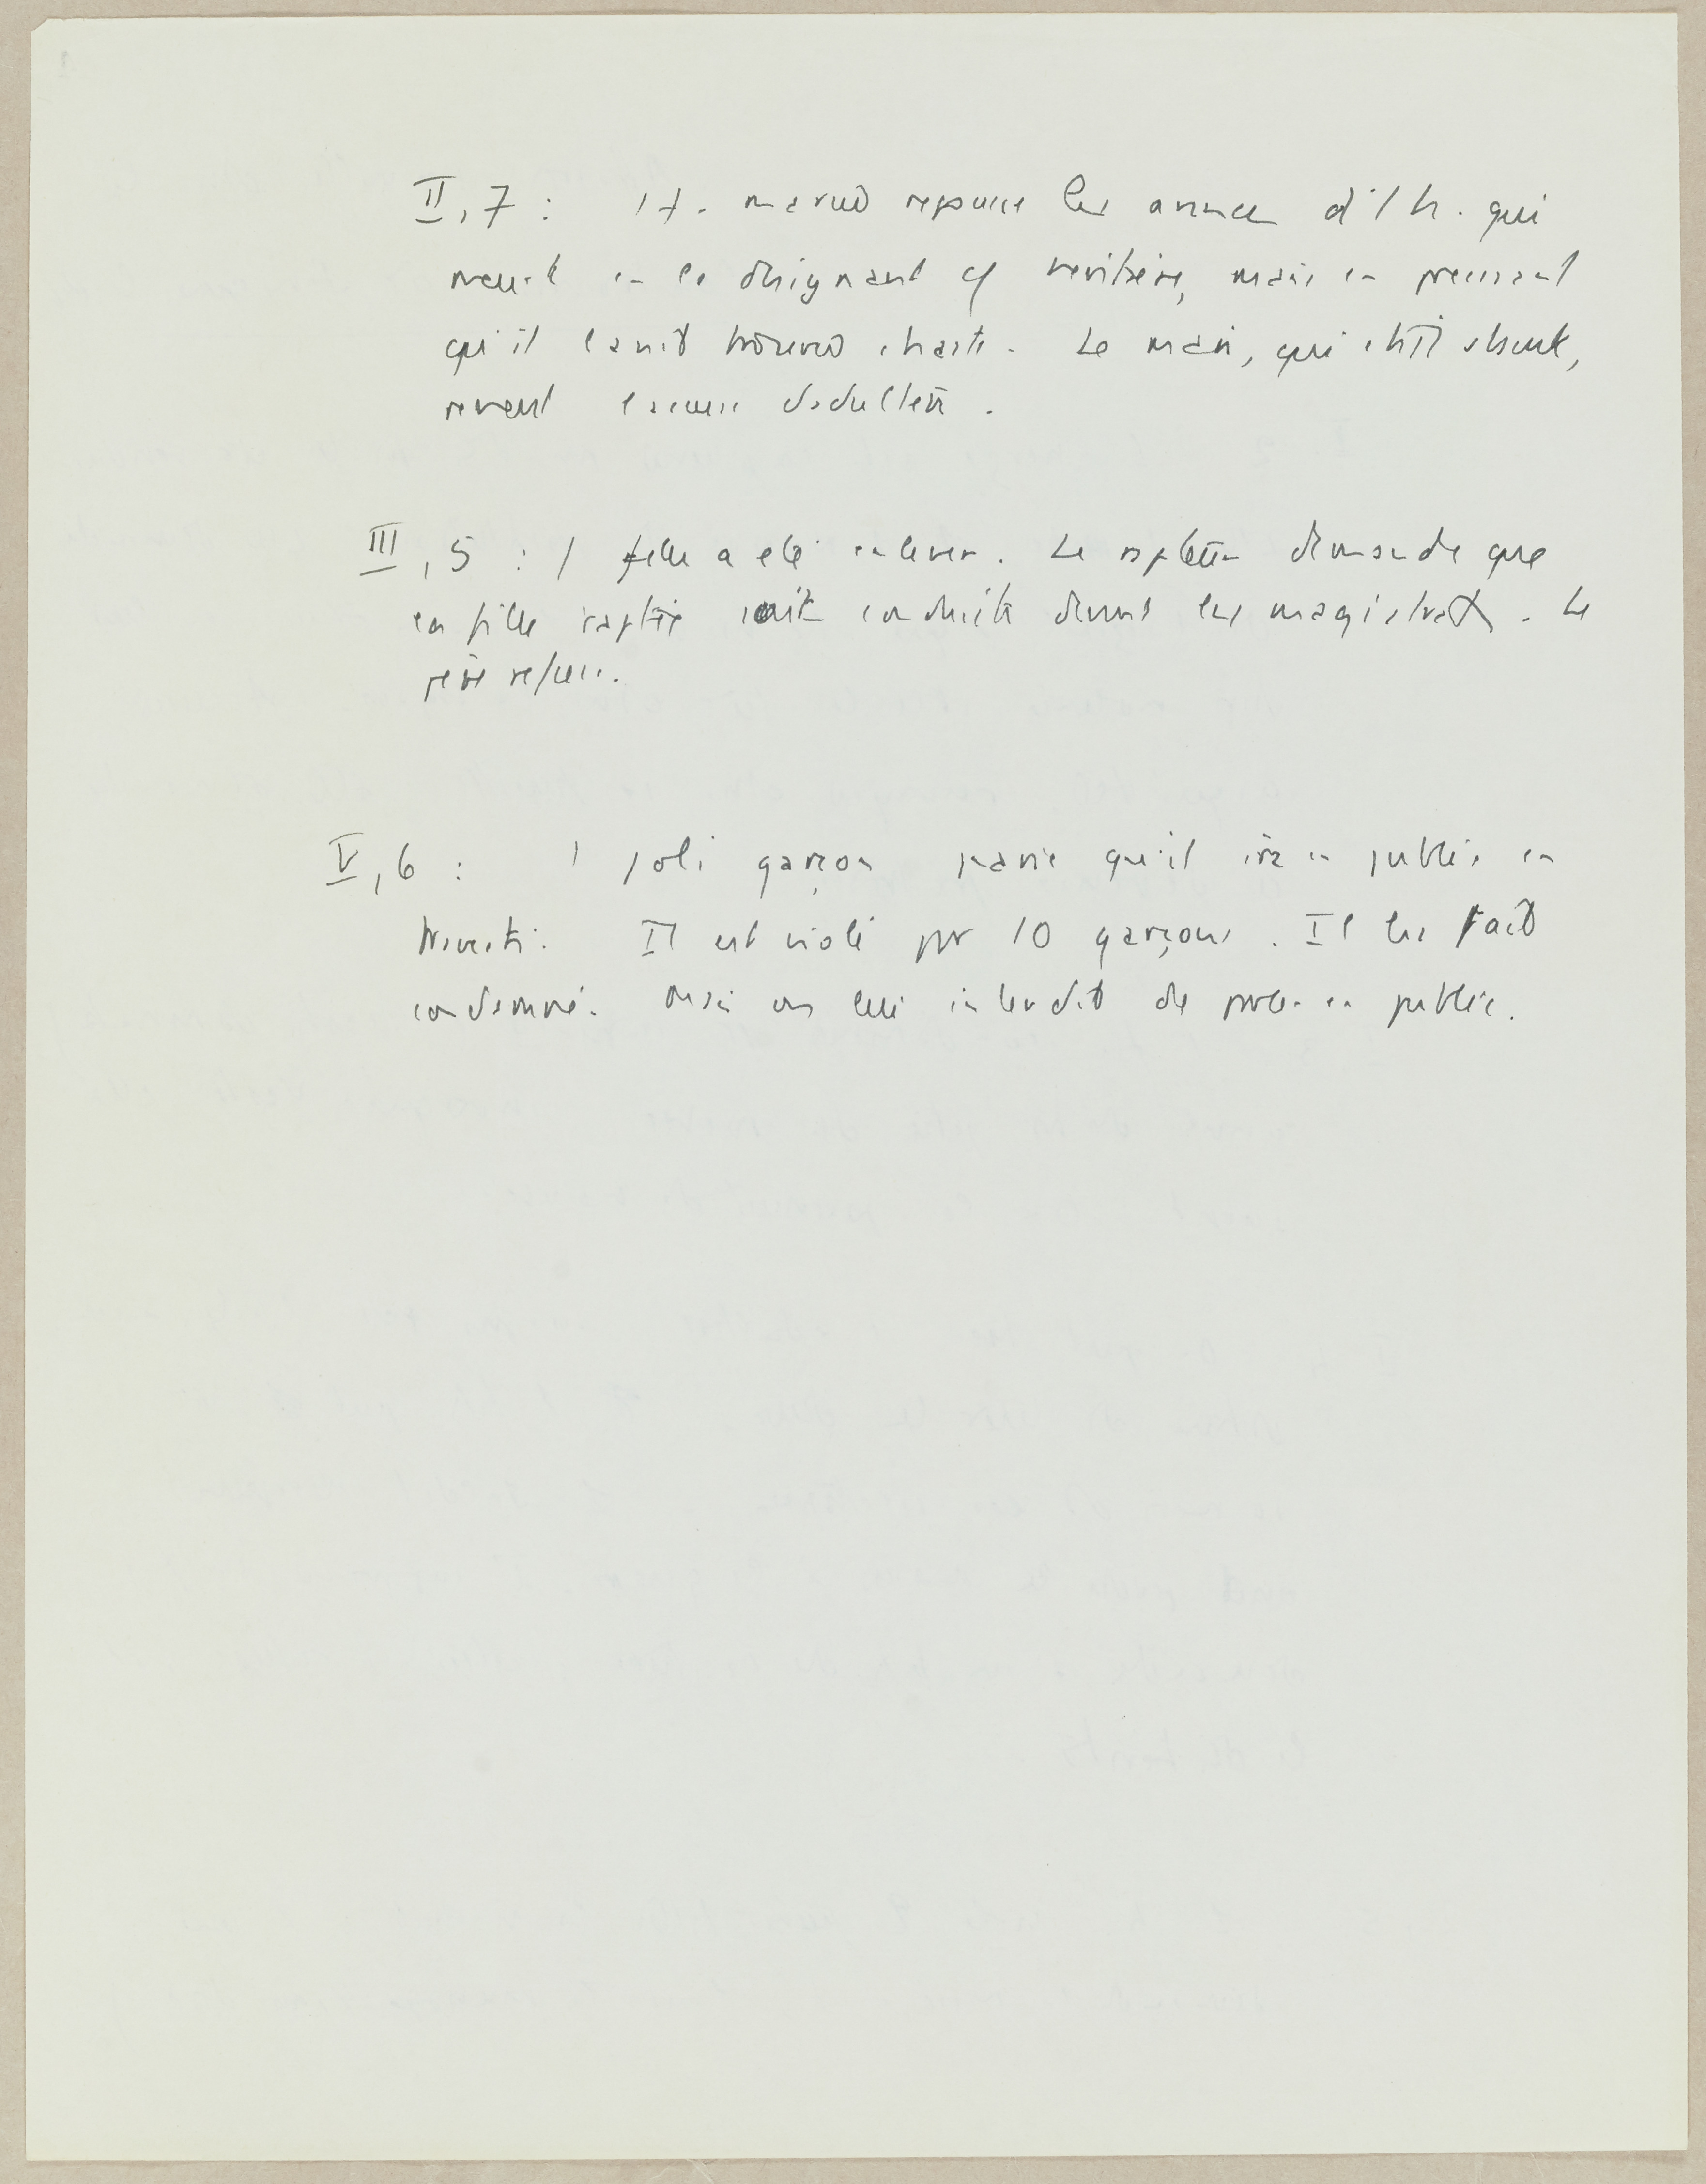 II, 7 : 1 f. mariée repousse les avances d'1 h. qui
meurt en la désignant c/ héritière, mais en précisant
qu'il l'avait trouvée chaste. Le mari, qui était absent,
revient l'accuse d'adultère.
III, 5 : 1 fille a été enlevée. Le rapteur demande que
la fille raptée soit conduite devant les magistrats. Le
père refuse.
V, 6 : 1 joli garçon parie qu'il ira en public en
travesti. Il est violé par 10 garçons. Il les fait
condamner. Mais on lui interdit de parler en public.